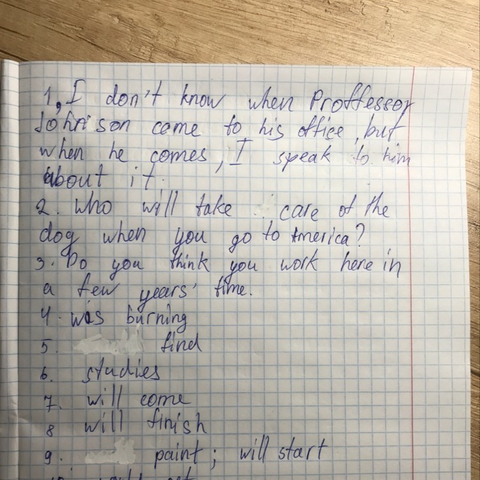 1. I don't know when Proffessor
Johnson come to his office, but
when he comes, I speak to him
about it.
2. who will take care of the
dog when you go to America?
3. Do you think you work here in
a few years' time.
4. was burning
5. find
6. studies
7. will come
8 will finish
9. paint; will start